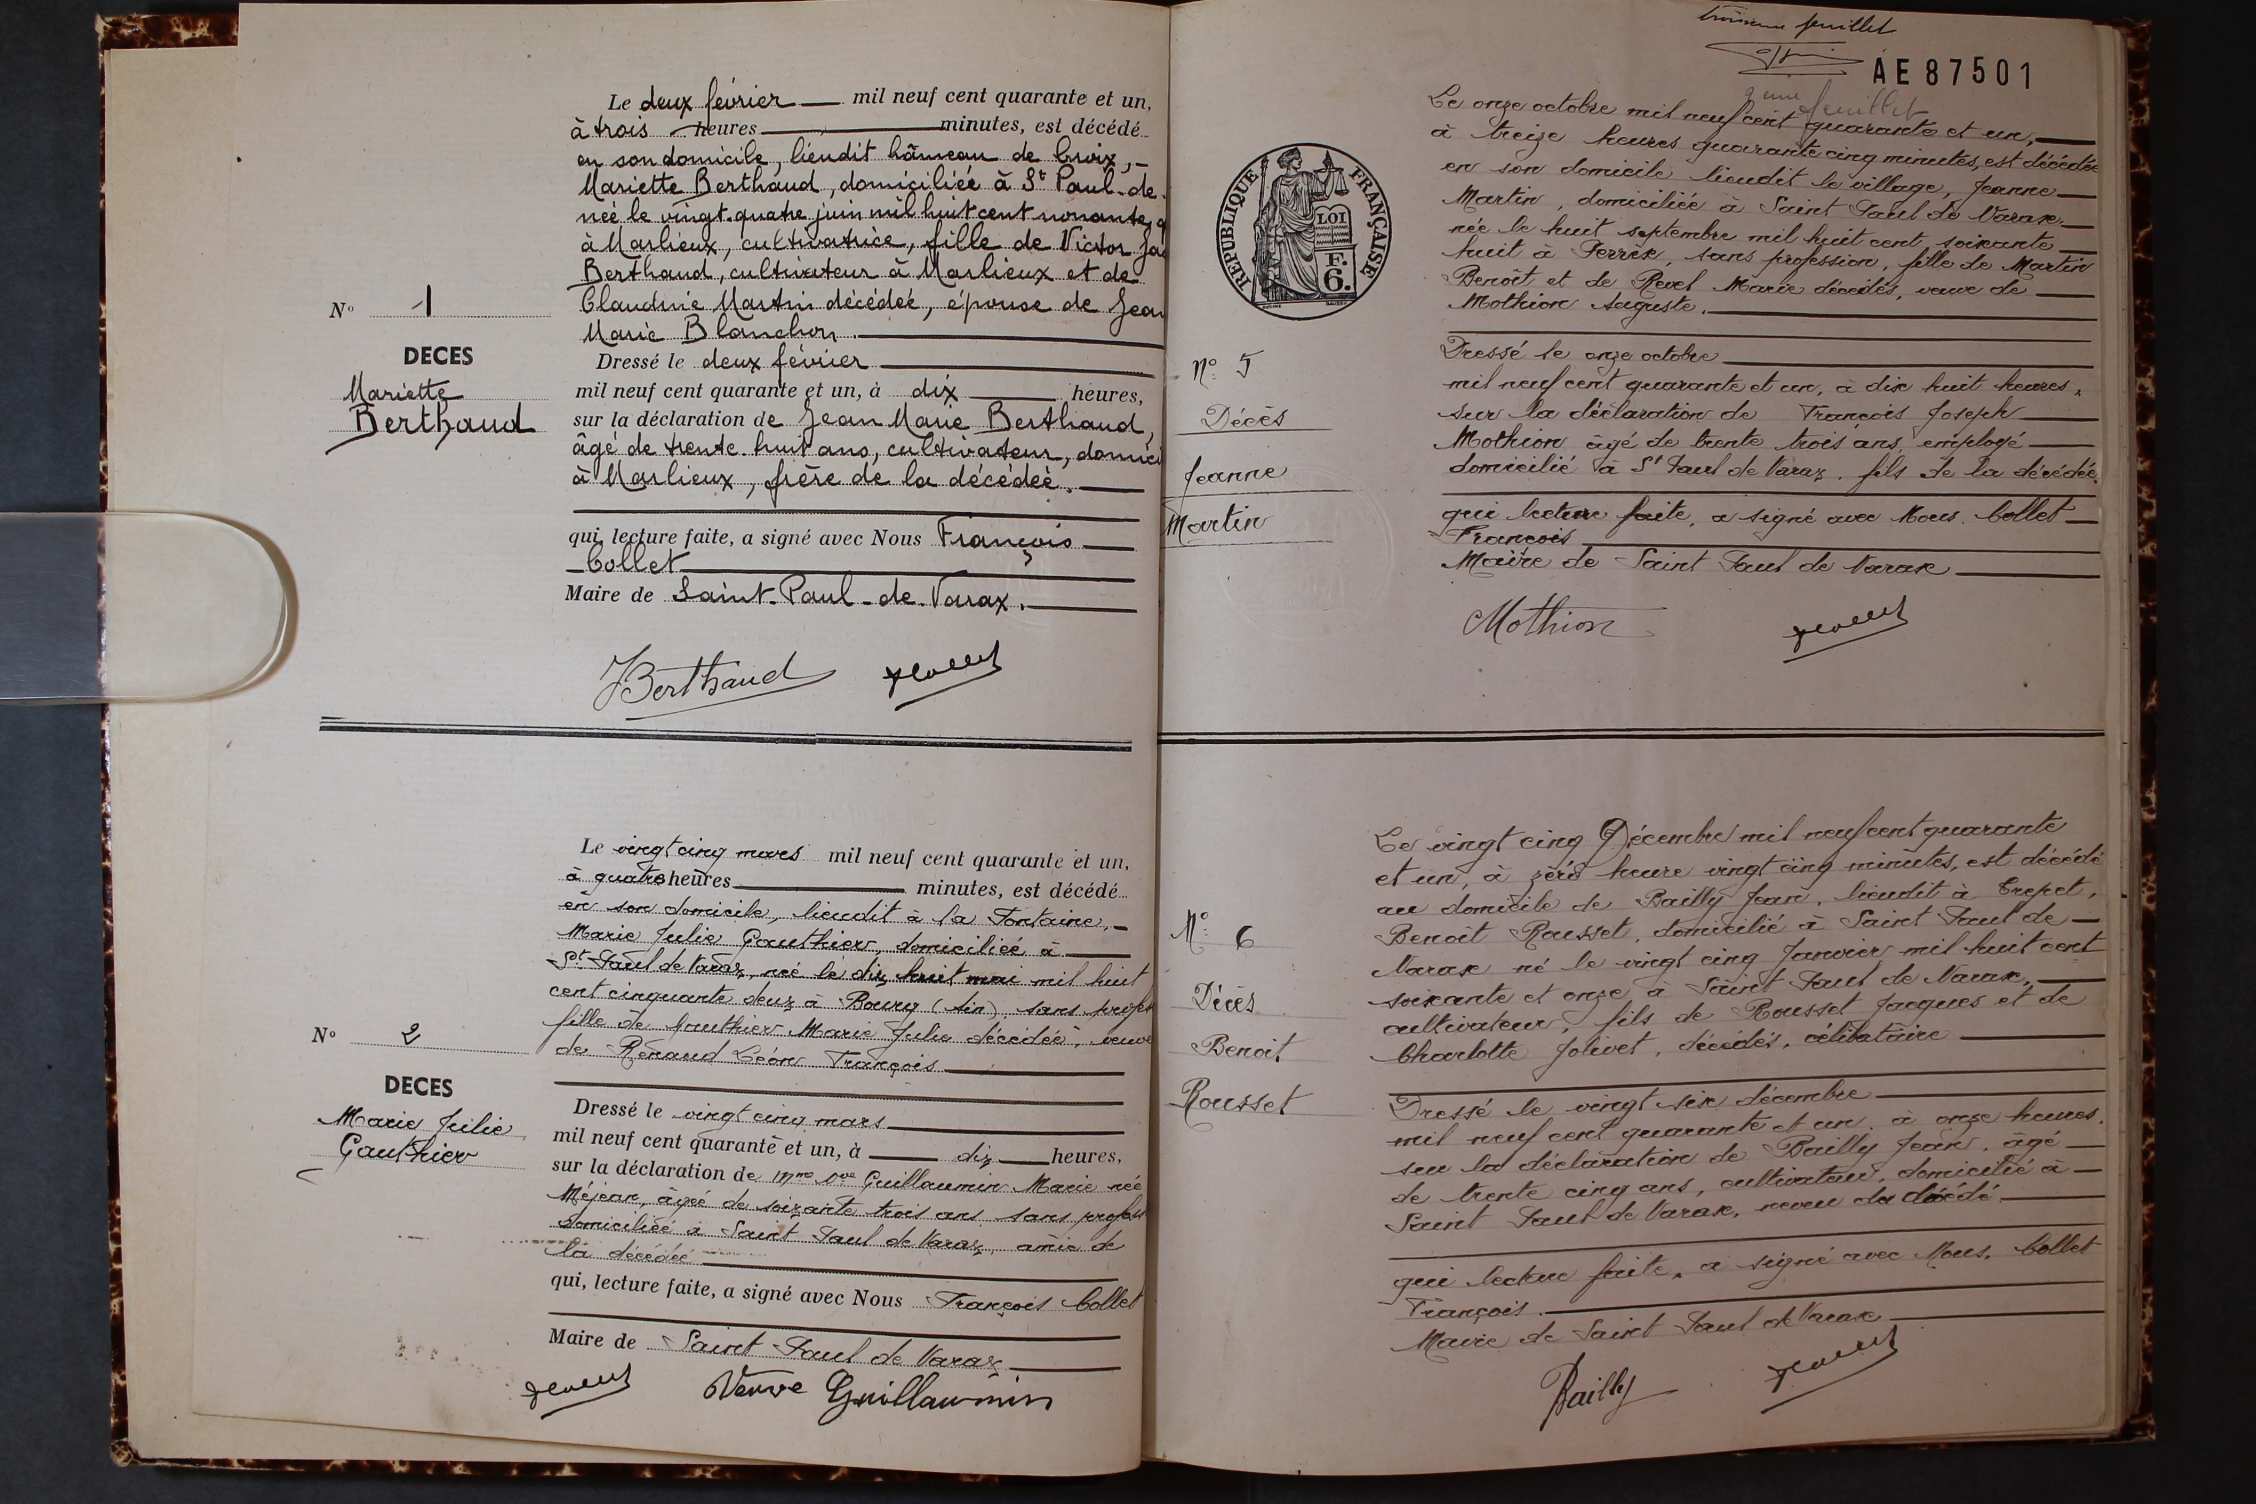 Le deux février mil neuf cent quarante et un,
à trois heures minutes, est décédé
en son domicile, lieudit hâmeau de Croix,
Mariette Berthaud, domiciliée à St Paul-de-
née le vingt-quatre juin mil huit cent nonante
à Marlieux, cultivatrice, fille de Victor
Berthaud, cultivateur à Marlieux et de
Claudine Martin décédée, épouse de Jean
Marie Blanchon.
N° 1
DECES
Mariette
Berthaud
Dressé le deux février
mil neuf cent quarante et un, à dix heures,
sur la déclaration de Jean Marie Berthaud,
âgé de trente-huit ans, cultivateur, domici
à Marlieux, frère de la décédée.
qui, lecture faite, a signé avec Nous François
Collet
Maire de Saint-Paul-de-Varax.
JBerthaud
Le vingt cinq mars mil neuf cent quarante et un,
à quatre heures minutes, est décédé
en son domicile, lieudit à la Fontaine,
Marie Julie Gauthier, domiciliée à
St Paul de Varax, née le dix huit mai mil huit
cent cinquante deux à Bourg (Ain), sans profes
fille de Gauthier Marie Julie décédée, veuve
de Renaud Léon François
N° 2
DECES
Marie Julie
Gauthier
Dressé le vingt cinq mars
mil neuf cent quarante et un, à dix heures,
sur la déclaration de Mme Vve Guillaumin Marie née
Méjean, âgée de soixante trois ans sans profess
domiciliée à Saint Paul de Varax, amie de
la décédée
qui, lecture faite, a signé avec Nous François Collet
Maire de Saint Paul de Varax
Veuve Guillaumin
troisième feuillet
AE87501
feuillet
REPUBLIQUE FRANÇAISE
LOI
F.
6.
Le onze octobre mil neuf cent quarante et un,
à treize heures quarante cinq minutes, est décédée
en son domicile lieudit le village, Jeanne
Martin, domiciliée à Saint Paul de Varax
née le huit septembre mil huit cent soixante
huit à Perrex, sans profession, fille de Martin
Benoît et de Revel Marie décédés, veuve de
Mothion Auguste.
N° 5
Décès
Jeanne
Martin
Dressé le onze octobre
mil neuf cent quarante et un, à dix huit heures,
sur la déclaration de François Joseph
Mothion âgé de trente trois ans, employé
domicilié à St Paul de Varax. fils de la décédée.
qui lecture faite, a signé avec Nous. Collet
François
Maire de Saint Paul de Varax
Mothion
Le vingt cinq Décembre mil neuf cent quarante
et un, à zéro heure vingt cinq minutes, est décédé
au domicile de Bailly Jean, lieudit à Trepet,
Benoît Rousset, domicilié à Saint Paul de
Varax né le vingt cinq Janvier mil huit cent
soixante et onze à Saint Paul de Varax,
cultivateur, fils de Rousset Jacques et de
Charlotte Jolivet, décédés, célibataire
N° 6
Décès
Benoit
Rousset
Dressé le vingt six décembre
mil neuf cent quarante et un, à onze heures.
sur la déclaration de Bailly Jean, âgé
de trente cinq ans, cultivateur, domicilié à
Saint Paul de Varax, neveu du décédé
qui lecture faite, a signé avec Nous, Collet
François.
Maire de Saint Paul de Varax
Bailly